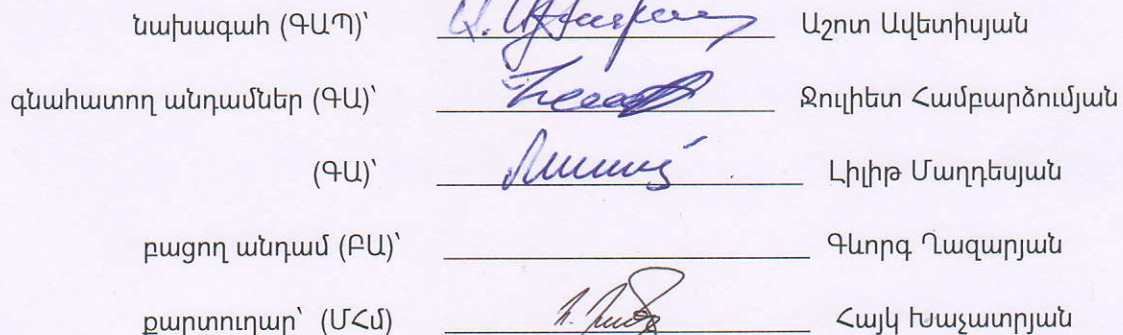 նախագահ (ԳԱՊ)՝ Աշոտ Ավետիսյան
գնահատող անդամներ (ԳԱ)՝ Ջուլիետ Համբարձումյան
(ԳԱ)՝ Լիլիթ Մաղդեսյան
բացող անդամ (ԲԱ)՝ Գևորգ Ղազարյան
քարտուղար՝ (ՄՀմ) Հայկ Խաչատրյան